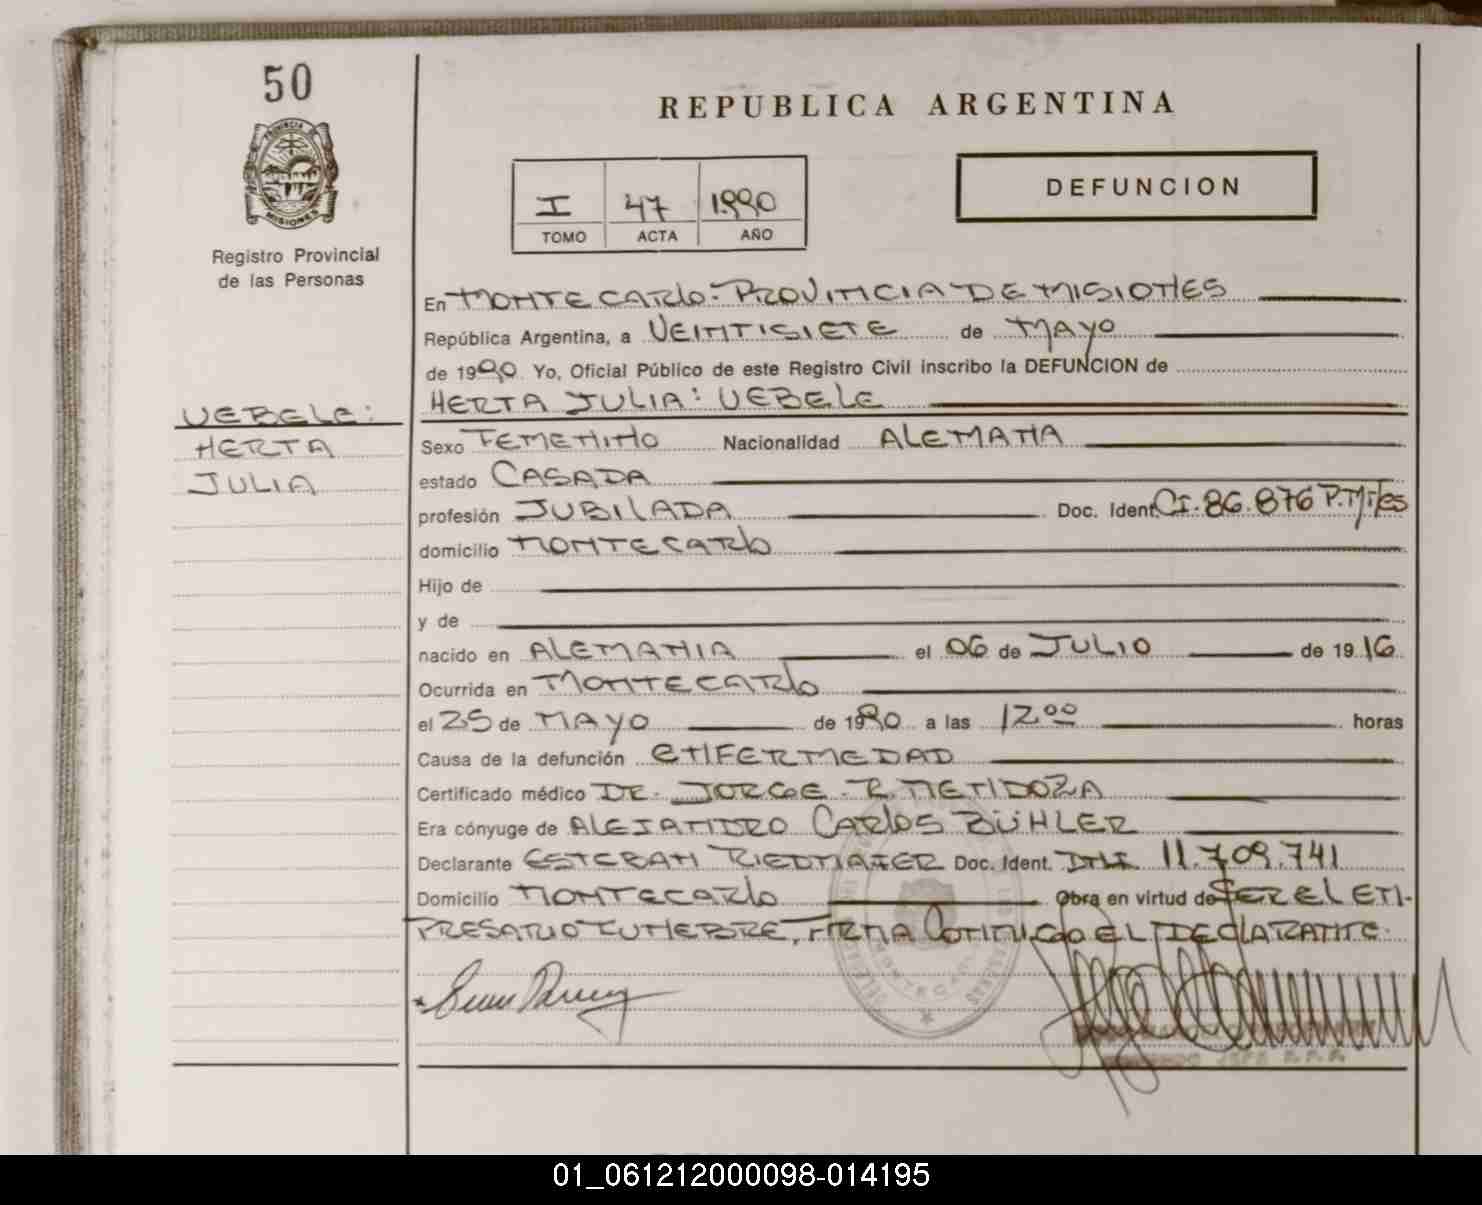 50
PROVINCIA DE
MISIONES
Registro Provincial
de las Personas
UEBELE:
HERTA
JULIA
REPUBLICA ARGENTINA
I 47 1990
TOMO ACTA AÑO
DEFUNCION
En MONTECARLO - PROVINCIA DE MISIONES
República Argentina, a VEINTISIETE de MAYO
de 1990. Yo, Oficial Público de este Registro Civil inscribo la DEFUNCION de
HERTA JULIA: UEBELE
Sexo FEMENINO Nacionalidad ALEMANA
estado CASADA
profesión JUBILADA Doc. Ident. CI. 86.876 P.M/nes
domicilio MONTECARLO
Hijo de
y de
nacido en ALEMANIA el 06 de JULIO de 1916
Ocurrida en MONTECARLO
el 25 de MAYO de 1990 a las 12 00 horas
Causa de la defunción ENFERMEDAD
Certificado médico DR. JORGE R. MENDOZA
Era cónyuge de ALEJANDRO CARLOS BÜHLER
Declarante ESTEBAN RIEDMAIER Doc. Ident. DNI 11.709.741
Domicilio MONTECARLO Obra en virtud de SER EL EM-
PRESARIO FUNEBRE, FIRMA CONMIGO EL DECLARANTE.
01_061212000098-014195